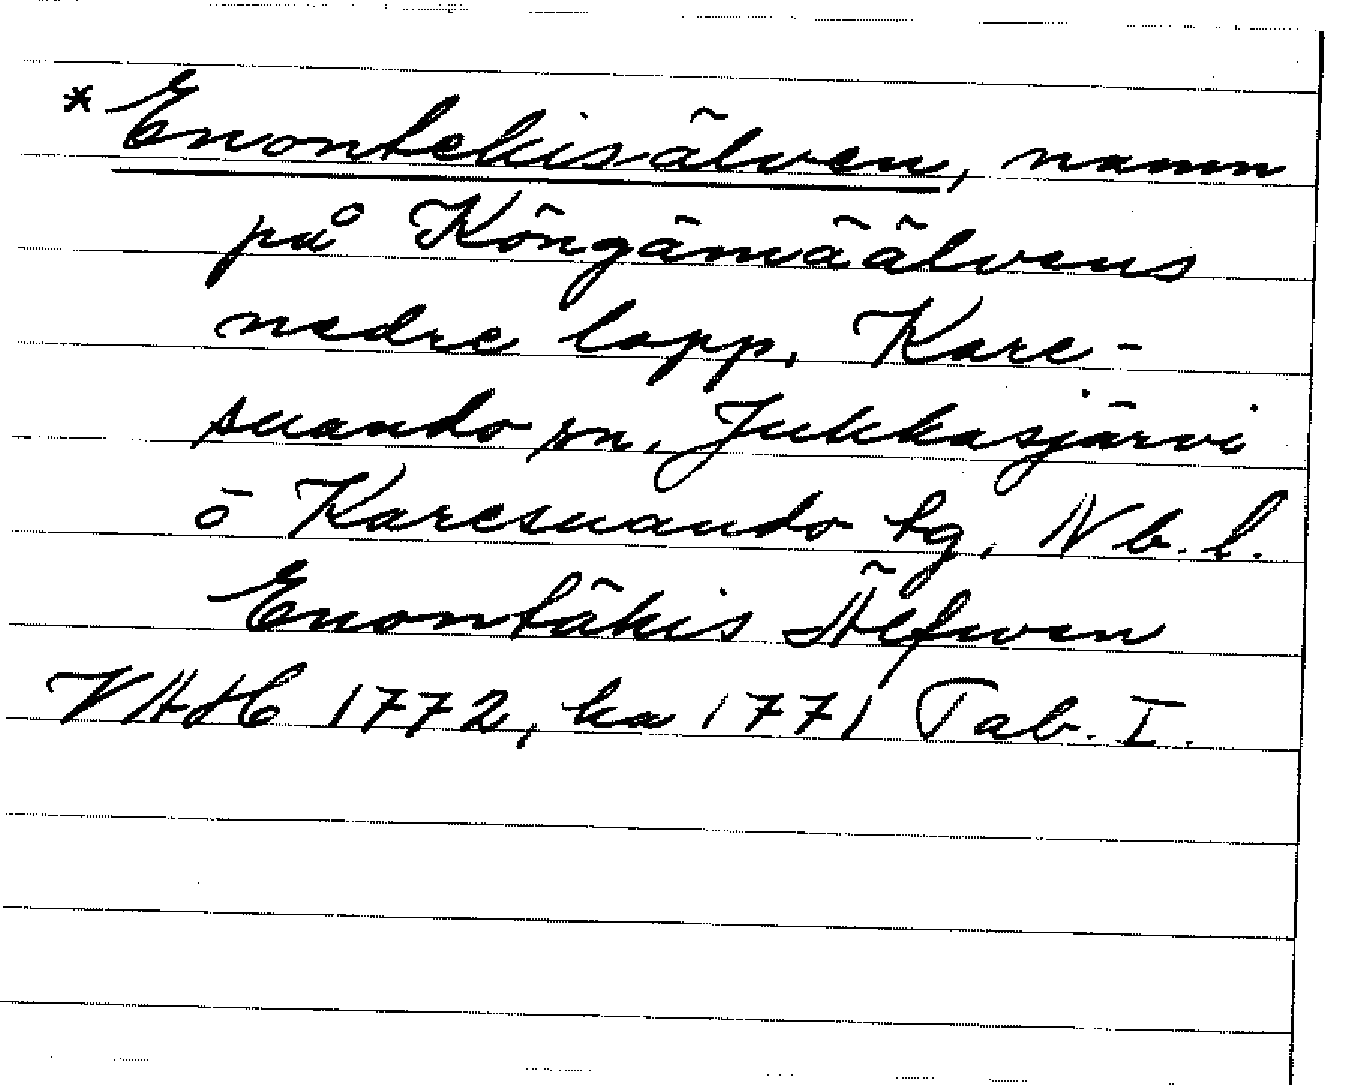 * Enontekisälven, namn
på Köngämäälvens
nedre lopp, Kare-
suando sn, Jukkasjärvi
o Karesuando tg, Nb. l.
Enontäkis Älfwen
VAH 1772, ka 1771 Tab. I.